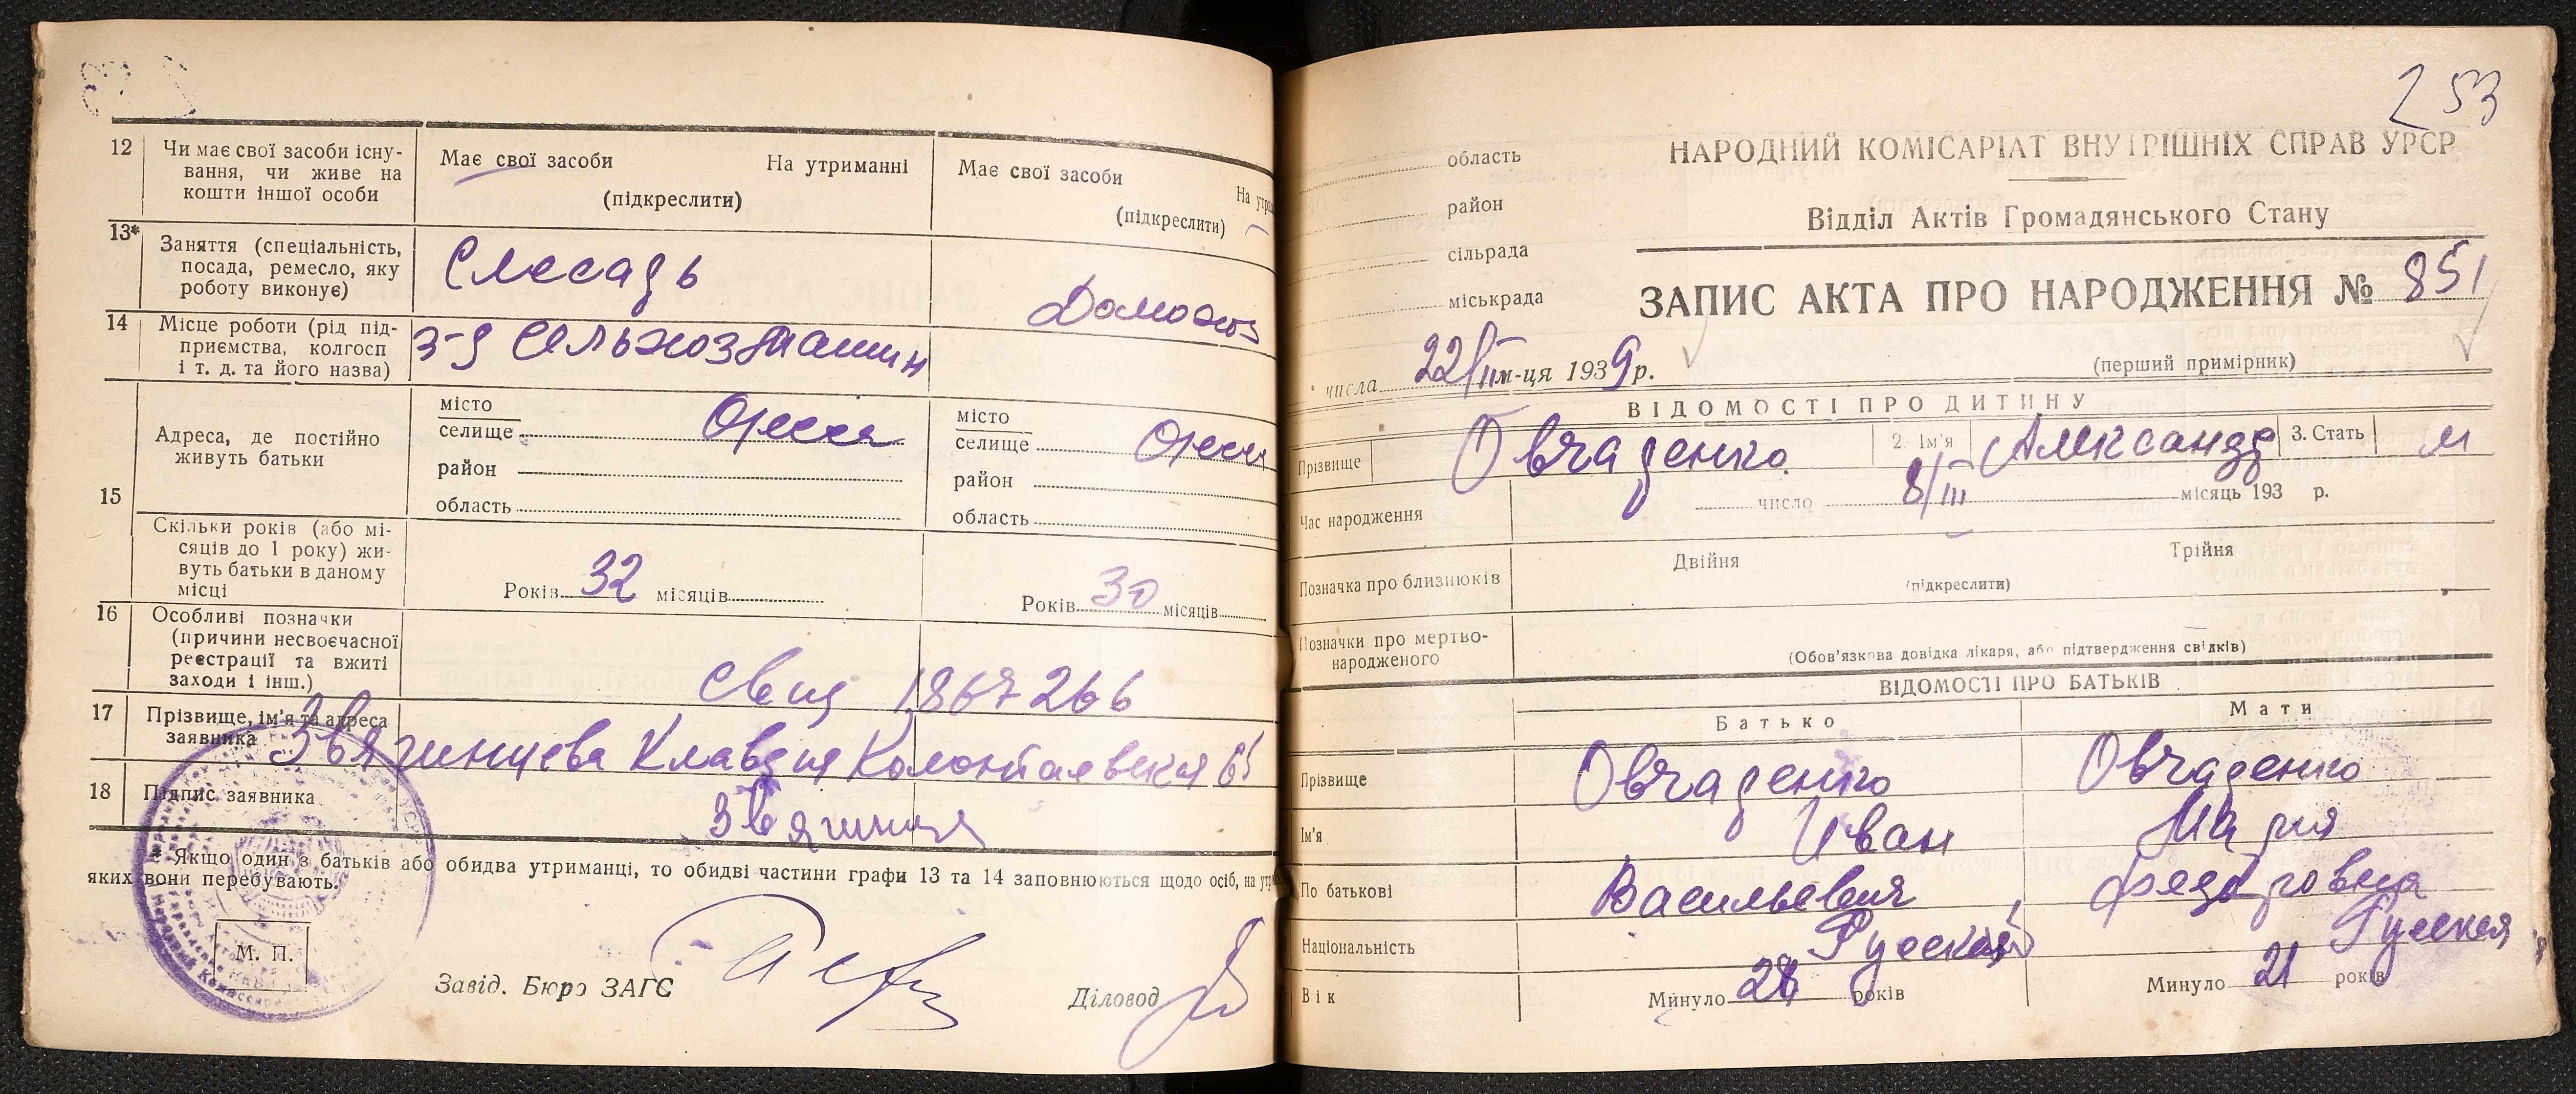 12 Чи має свої засоби існу-
вання, чи живе на
кошти іншої особи
Має свої засоби На утриманні
(підкреслити)
Має свої засоби
На утрим
(підкреслити)
13* Заняття (спеціальність,
посада, ремесло, яку
роботу виконує)
Слесарь
Домохоз
14 Місце роботи (рід під-
приємства, колгосп
і т. д. та його назва)
з-д Сельхозмашин
15 Адреса, де постійно
живуть батьки
місто
селище Одесса
район
область
місто
селище Одесса
район
область
Скільки років (або мі-
сяців до 1 року) жи-
вуть батьки в даному
місці
Років 32 місяців
Років 30 місяців
16 Особливі позначки
(причини несвоєчасної
реєстрації та вжиті
заходи і інш.)
1867266
17 Прізвище, ім'я та адреса
заявника
Звягинцева Клавдия Колонтаевская 65
18 Підпис заявника
* Якщо один з батьків або обидва утриманці, то обидві частини графи 13 та 14 заповнюються щодо осіб, на утри
яких вони перебувають.
М. П.
Завід. Бюро ЗАГС
Діловод
253
область
район
сільрада
міськрада
НАРОДНИЙ КОМІСАРІАТ ВНУТРІШНІХ СПРАВ УРСР
Відділ Актів Громадянського Стану
ЗАПИС АКТА ПРО НАРОДЖЕННЯ № 851
(перший примірник)
" числа 22/III м-ця 1939 р.
ВІДОМОСТІ ПРО ДИТИНУ
Прізвище Овчаренко 2. Ім'я Александр 3. Стать м
Час народження число 8/III місяць 193 р.
Позначка про близнюків Двійня Трійня
(підкреслити)
Позначки про мертво-
народженого
(Обов'язкова довідка лікаря, або підтвердження свідків)
ВІДОМОСТІ ПРО БАТЬКІВ
Батько Мати
Прізвище Овчаренко Овчаренко
Ім'я Иван Мария
По батькові Васильевич Федоровна
Національність Русский Русская
Вік Минуло 28 років Минуло 21 років